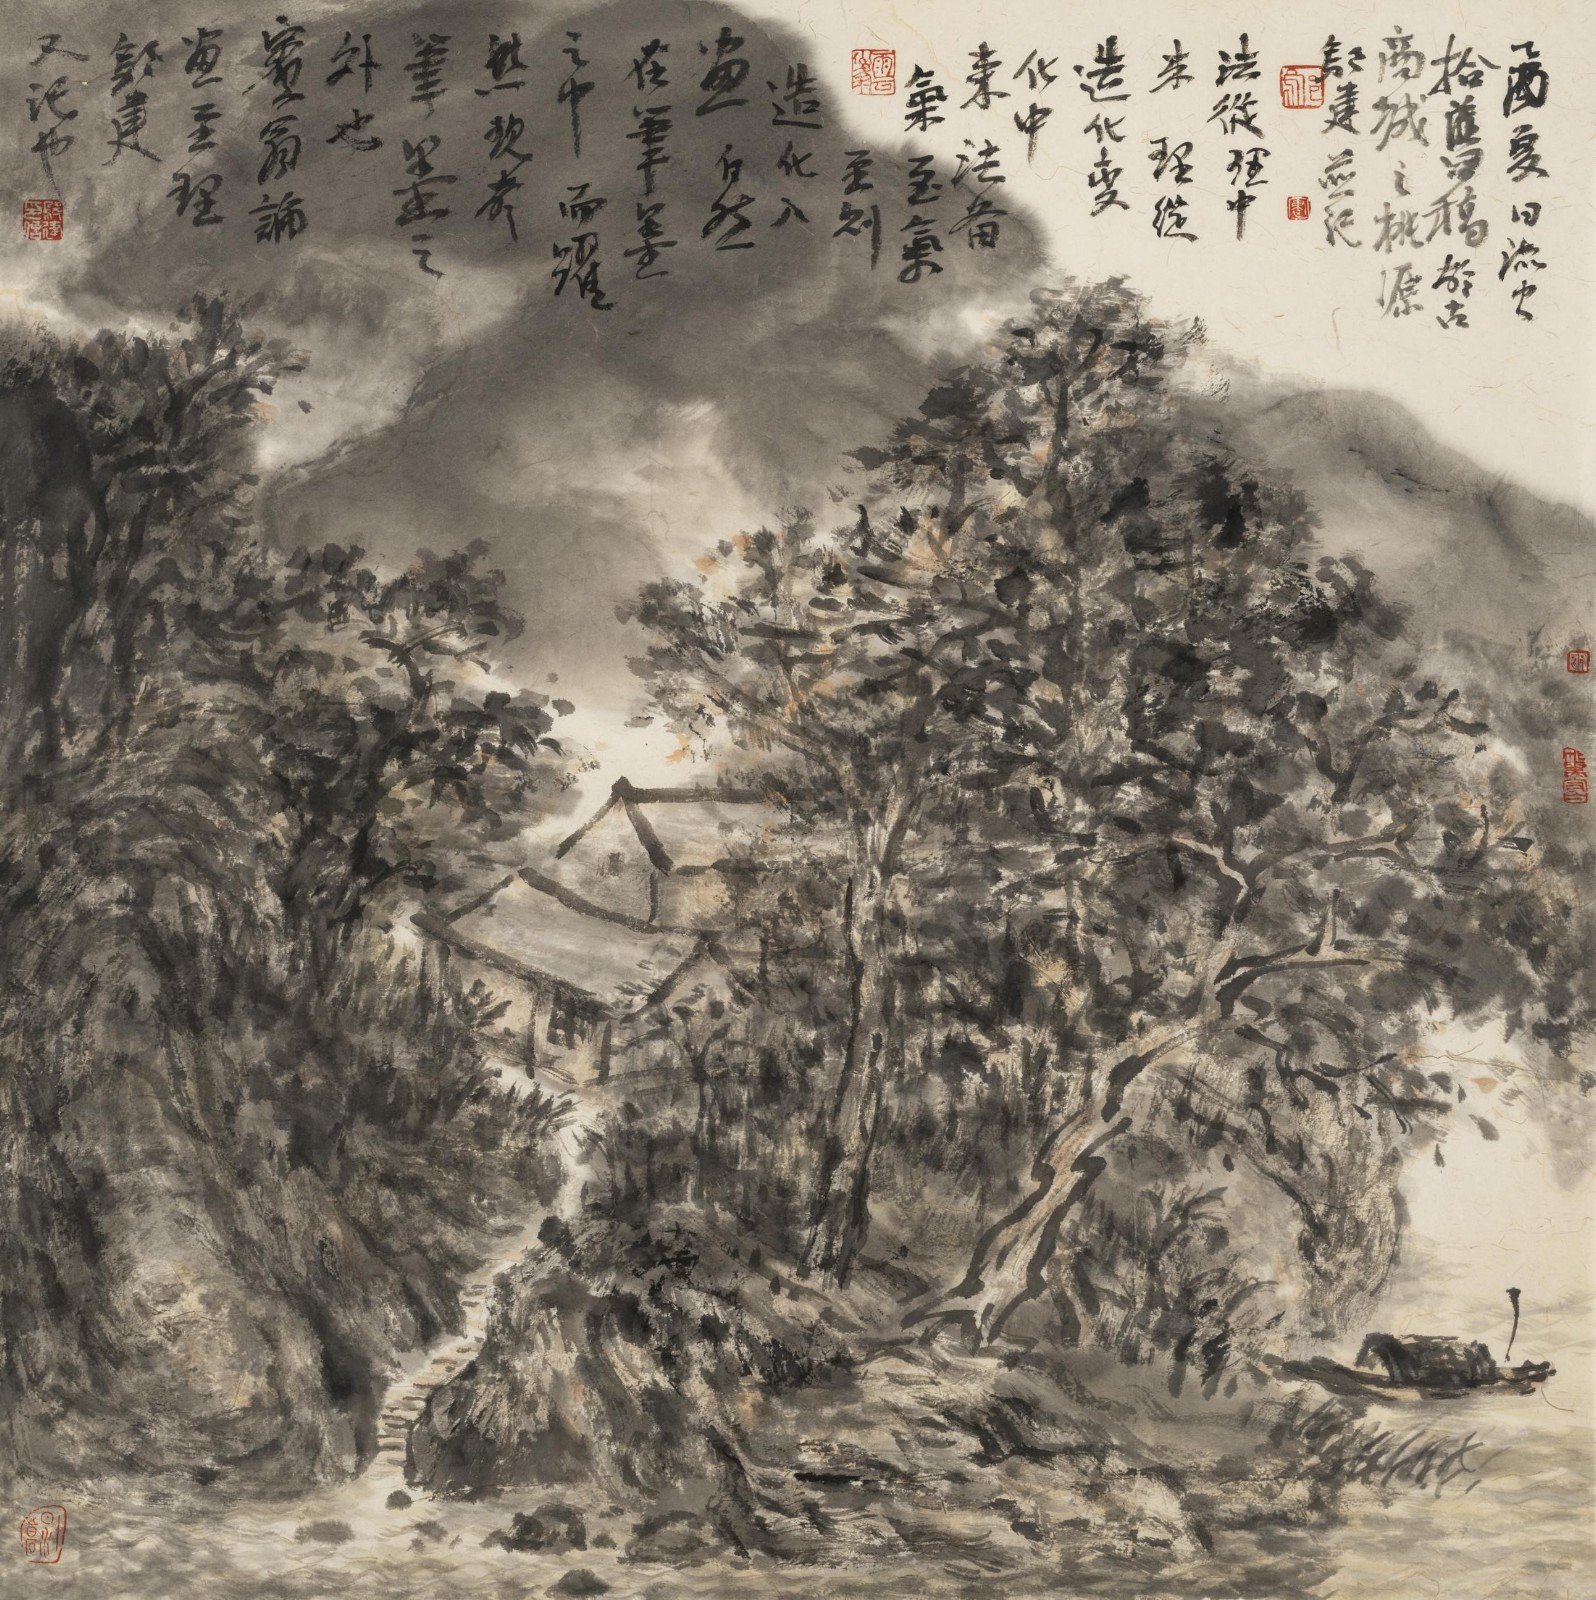 乙酉夏日流火
拾舊日稿於古
商城之桃源
郭建並記
法從理中
來理從
造化變
化中
來法備
氣至氣
至則
造化入
畫自然
在筆墨
之中而躍
然現於
筆墨之
外也
賓翁論
畫至理
郭建
又記也